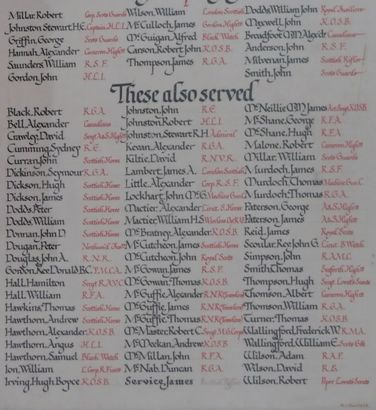 Millar, Robert
Johnston Stewart, H.E. Captain H.L.I.
Griffin, George Scots Guards
Hannah, Alexander
Saunders, William R.S.F.
Gordon, John H.L.I.
Wilson, William London Scottish
McCulloch, James Gordon Highrs
McGuigan, Alfred Black Watch
Carson, Robert John K.O.S.B.
Thompson, James R.G.A.
Dodds, William John
Maxwell, John K.O.S.B.
Anderson, John R.S.F.
Milvenan, James Scottish Rifles
Smith, John Scots Guards
These also served
Black, Robert R.G.A.
Bell, Alexander Canadians
Crawley, David
Cumming, Sydney R.E.
Curran, John Scottish Horse
Dickinson, Seymour R.G.A.
Dickson, Hugh Scottish Horse
Dickson, James Scottish Horse
Dodds, Peter Scottish Horse
Dodds, William Scottish Horse
Donnan, John D. Scottish Horse
Dougan, Peter
Douglas, John A. R.N.R.
Gordon, Rev. Donald, B.C. Y.M.C.A.
Hall, Hamilton Sergt R.A.V.C.
Hall, William R.F.A.
Hawkins, Thomas Scottish Horse
Hawthorn, Andrew Scottish Horse
Hawthorn, Alexander K.O.S.B.
Hawthorn, Angus H.L.I.
Hawthorn, Samuel Black Watch
Ion, William
Irving, Hugh Boyce K.O.S.B.
Johnston, John R.E.
Johnston, Robert H.L.I.
Johnston, Stewart R.H. Admiral
Kevan, Alexander R.G.A.
Kiltie, David R.N.V.R.
Lambert, James A. London Scottish
Little, Alexander Corp R.S.F.
Lockhart, John Mc.
Mactier, Alexander
Mactier, William H.S.
McBratney, Alexander K.O.S.B.
McCutcheon, James Scottish Horse
McCutcheon, John Royal Scots
McGowan, James R.F.
McGowan, Thomas K.O.S.B.
McGuffie, Alexander
McGuffie, James
McGuffie, Thomas
McMaster, Robert C.
McMeekan, Andrew K.O.S.B.
McMillan, John R.F.A.
McNab, Duncan R.G.A.
Service, James
McNeillie, James
McShane, George R.F.A.
McShane, Hugh R.F.A.
Malone, Robert
Millar, William Scots Guards
Murdoch, James R.S.F.
Murdoch, Thomas
Murdoch, Thomas R.G.A.
Paterson, George
Paterson, James
Reid, James Royal Scots
Scoular, Rev. John G. Lieut. B. Watch
Simpson, John R.A.M.C.
Smith, Thomas Seaforth Highrs
Thompson, Hugh
Thomson, Albert
Thomson, William R.G.A.
Turner, Thomas K.O.S.B.
Wallingford, Frederick W. R.M.A.
Wallingford, William E. Scots Gds
Wilson, Adam R.A.F.
Wilson, David R.E.
Wilson, Robert